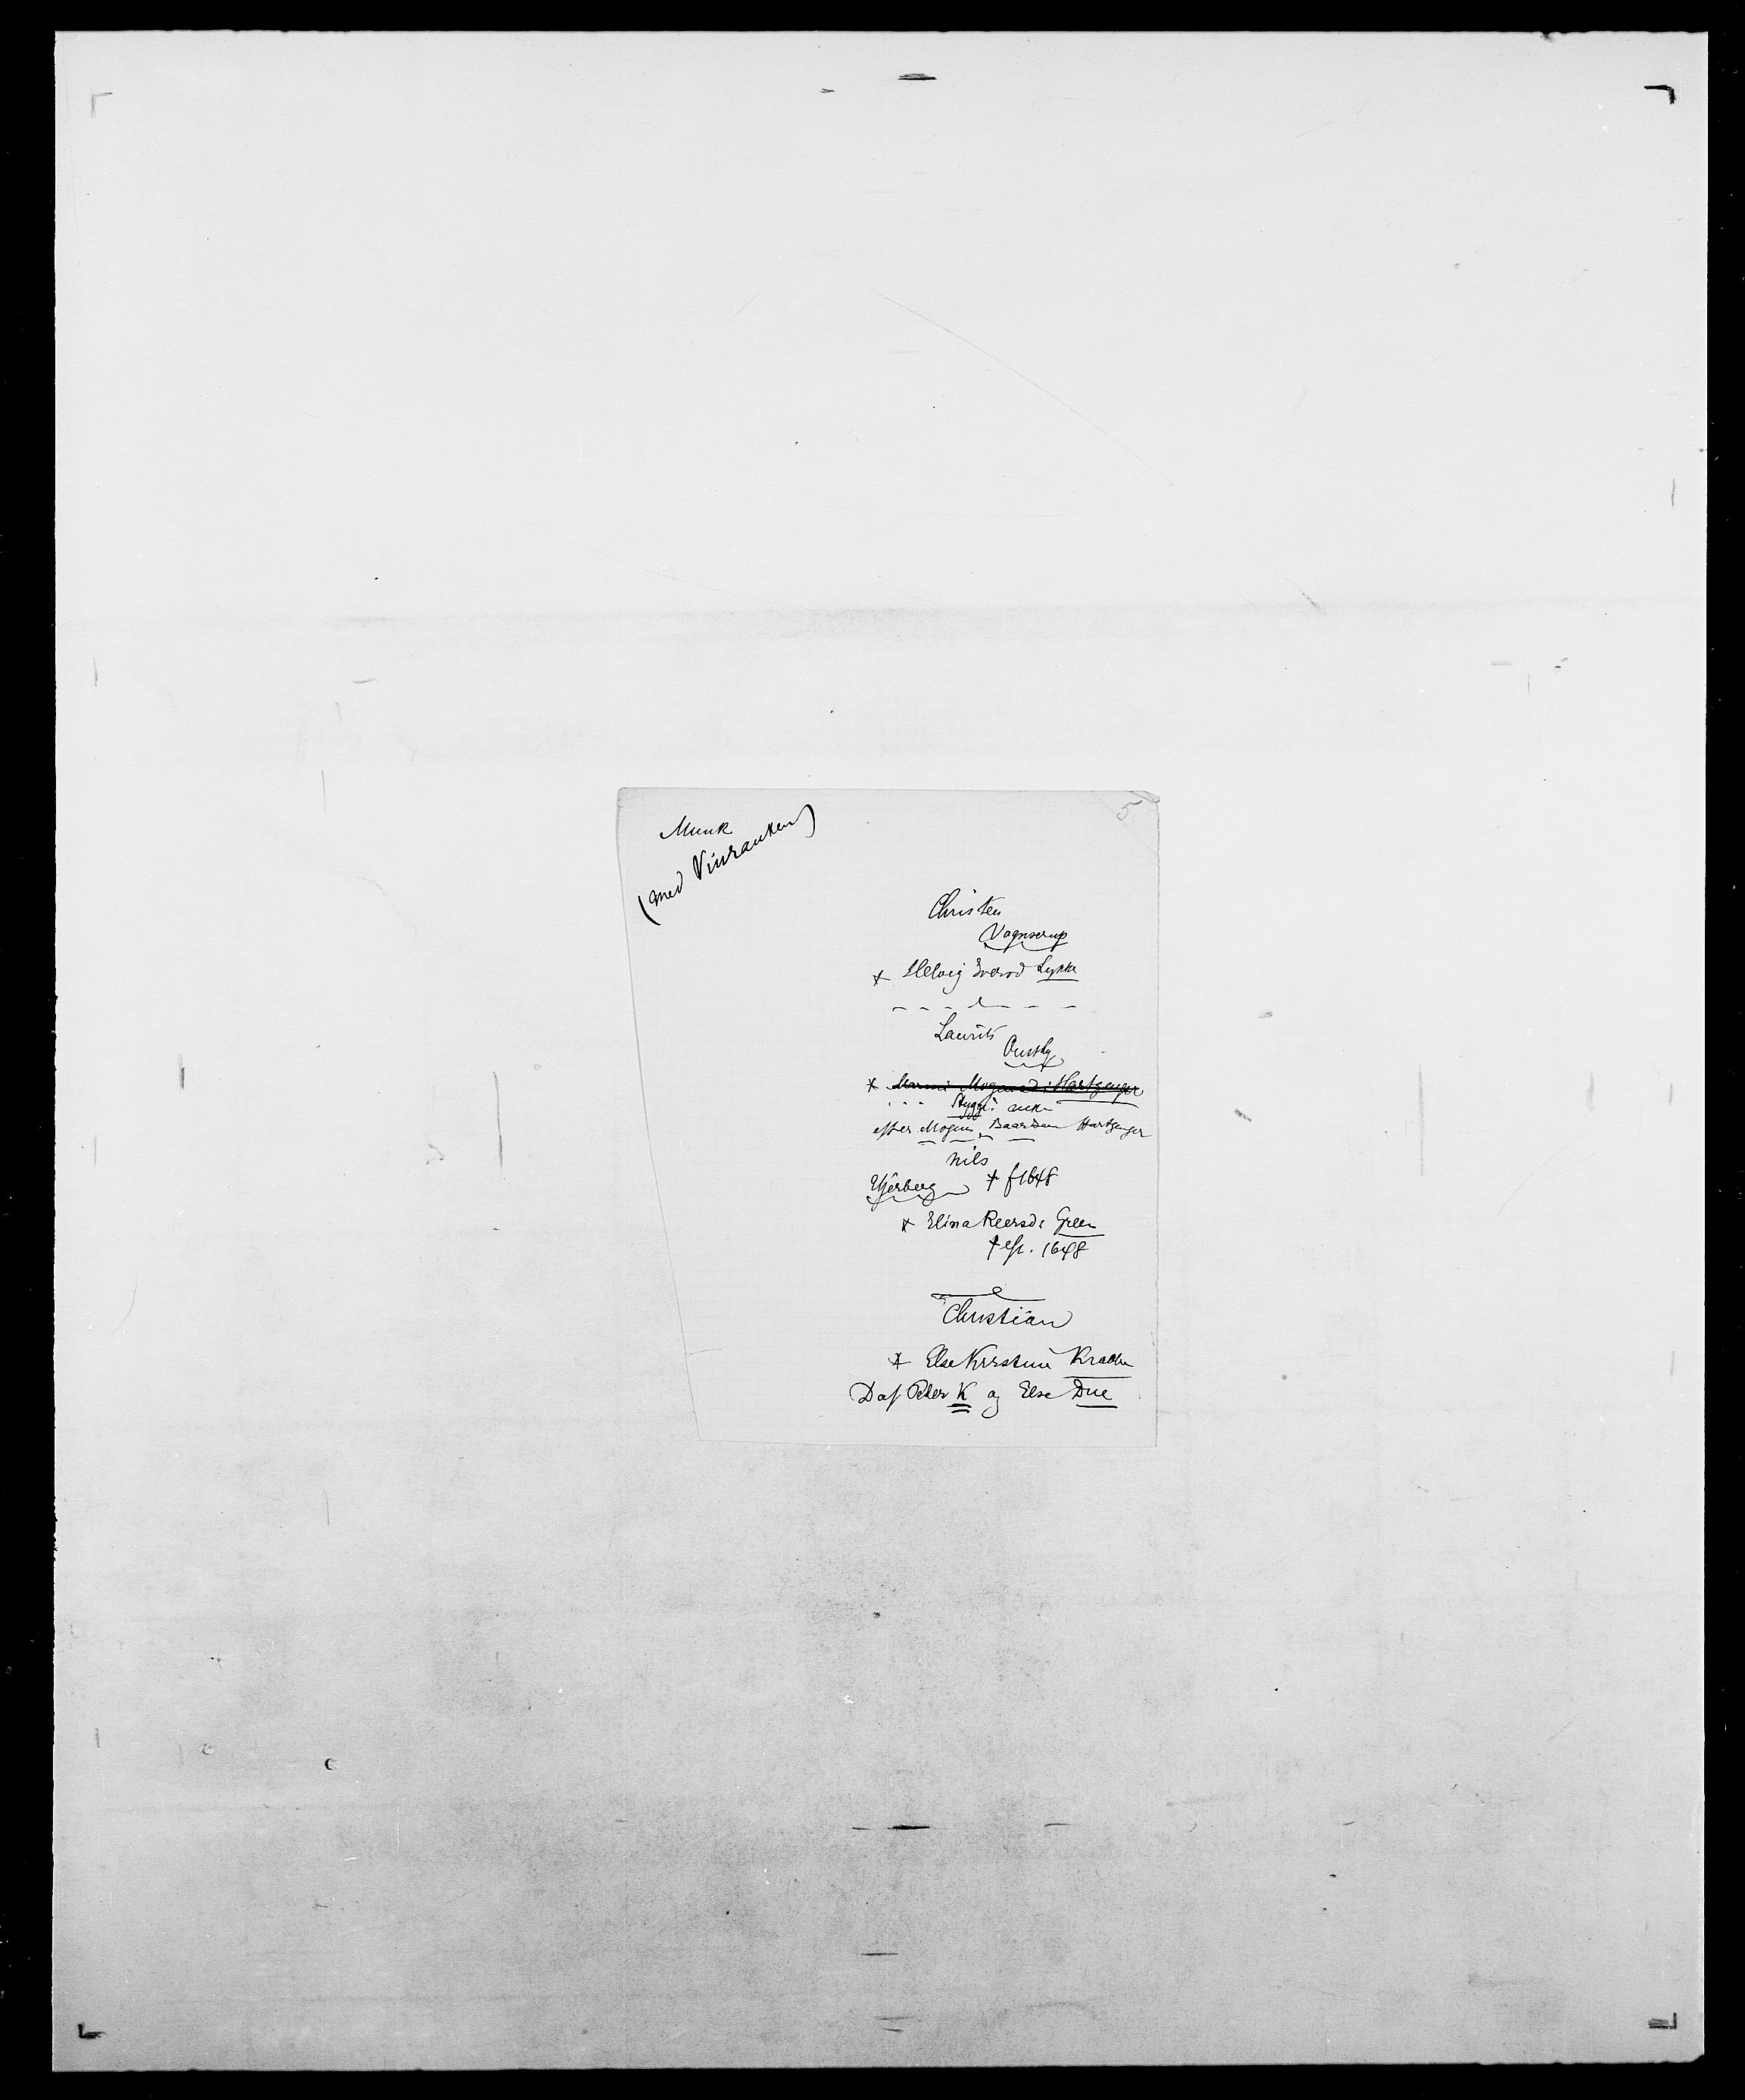 5
Munk
(med Vinranken)
Christen
Vognserup
x Helvig Iversd Lykke
Laurits
x Mogensd: Hartzenger
Stygge: enke
efter Mogens Baardsen Hartzenger
Nils
† f 1648
x Elina Reersd: Green
† eft. 1648
Christian
x Else Kirstine Krabbe
Daf Peter K og Else Due